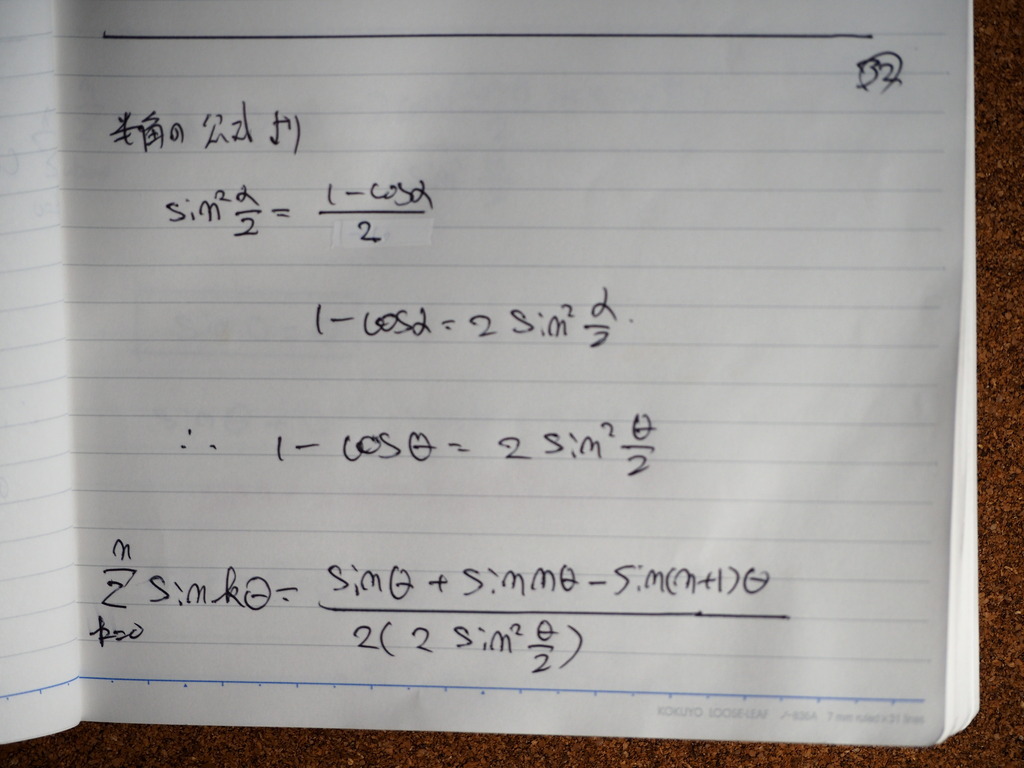 37
半角の公式より
sin² α/2 = (1 - cosα)/2
1 - cosα = 2 sin² α/2.
∴ 1 - cosθ = 2 sin² θ/2
n∑k=0 sin kθ = (sinθ + sin nθ - sin(n+1)θ)/(2(2 sin² θ/2))
KOKUYO LOOSE-LEAF ノ-836A 7 mm ruled x 31 lines